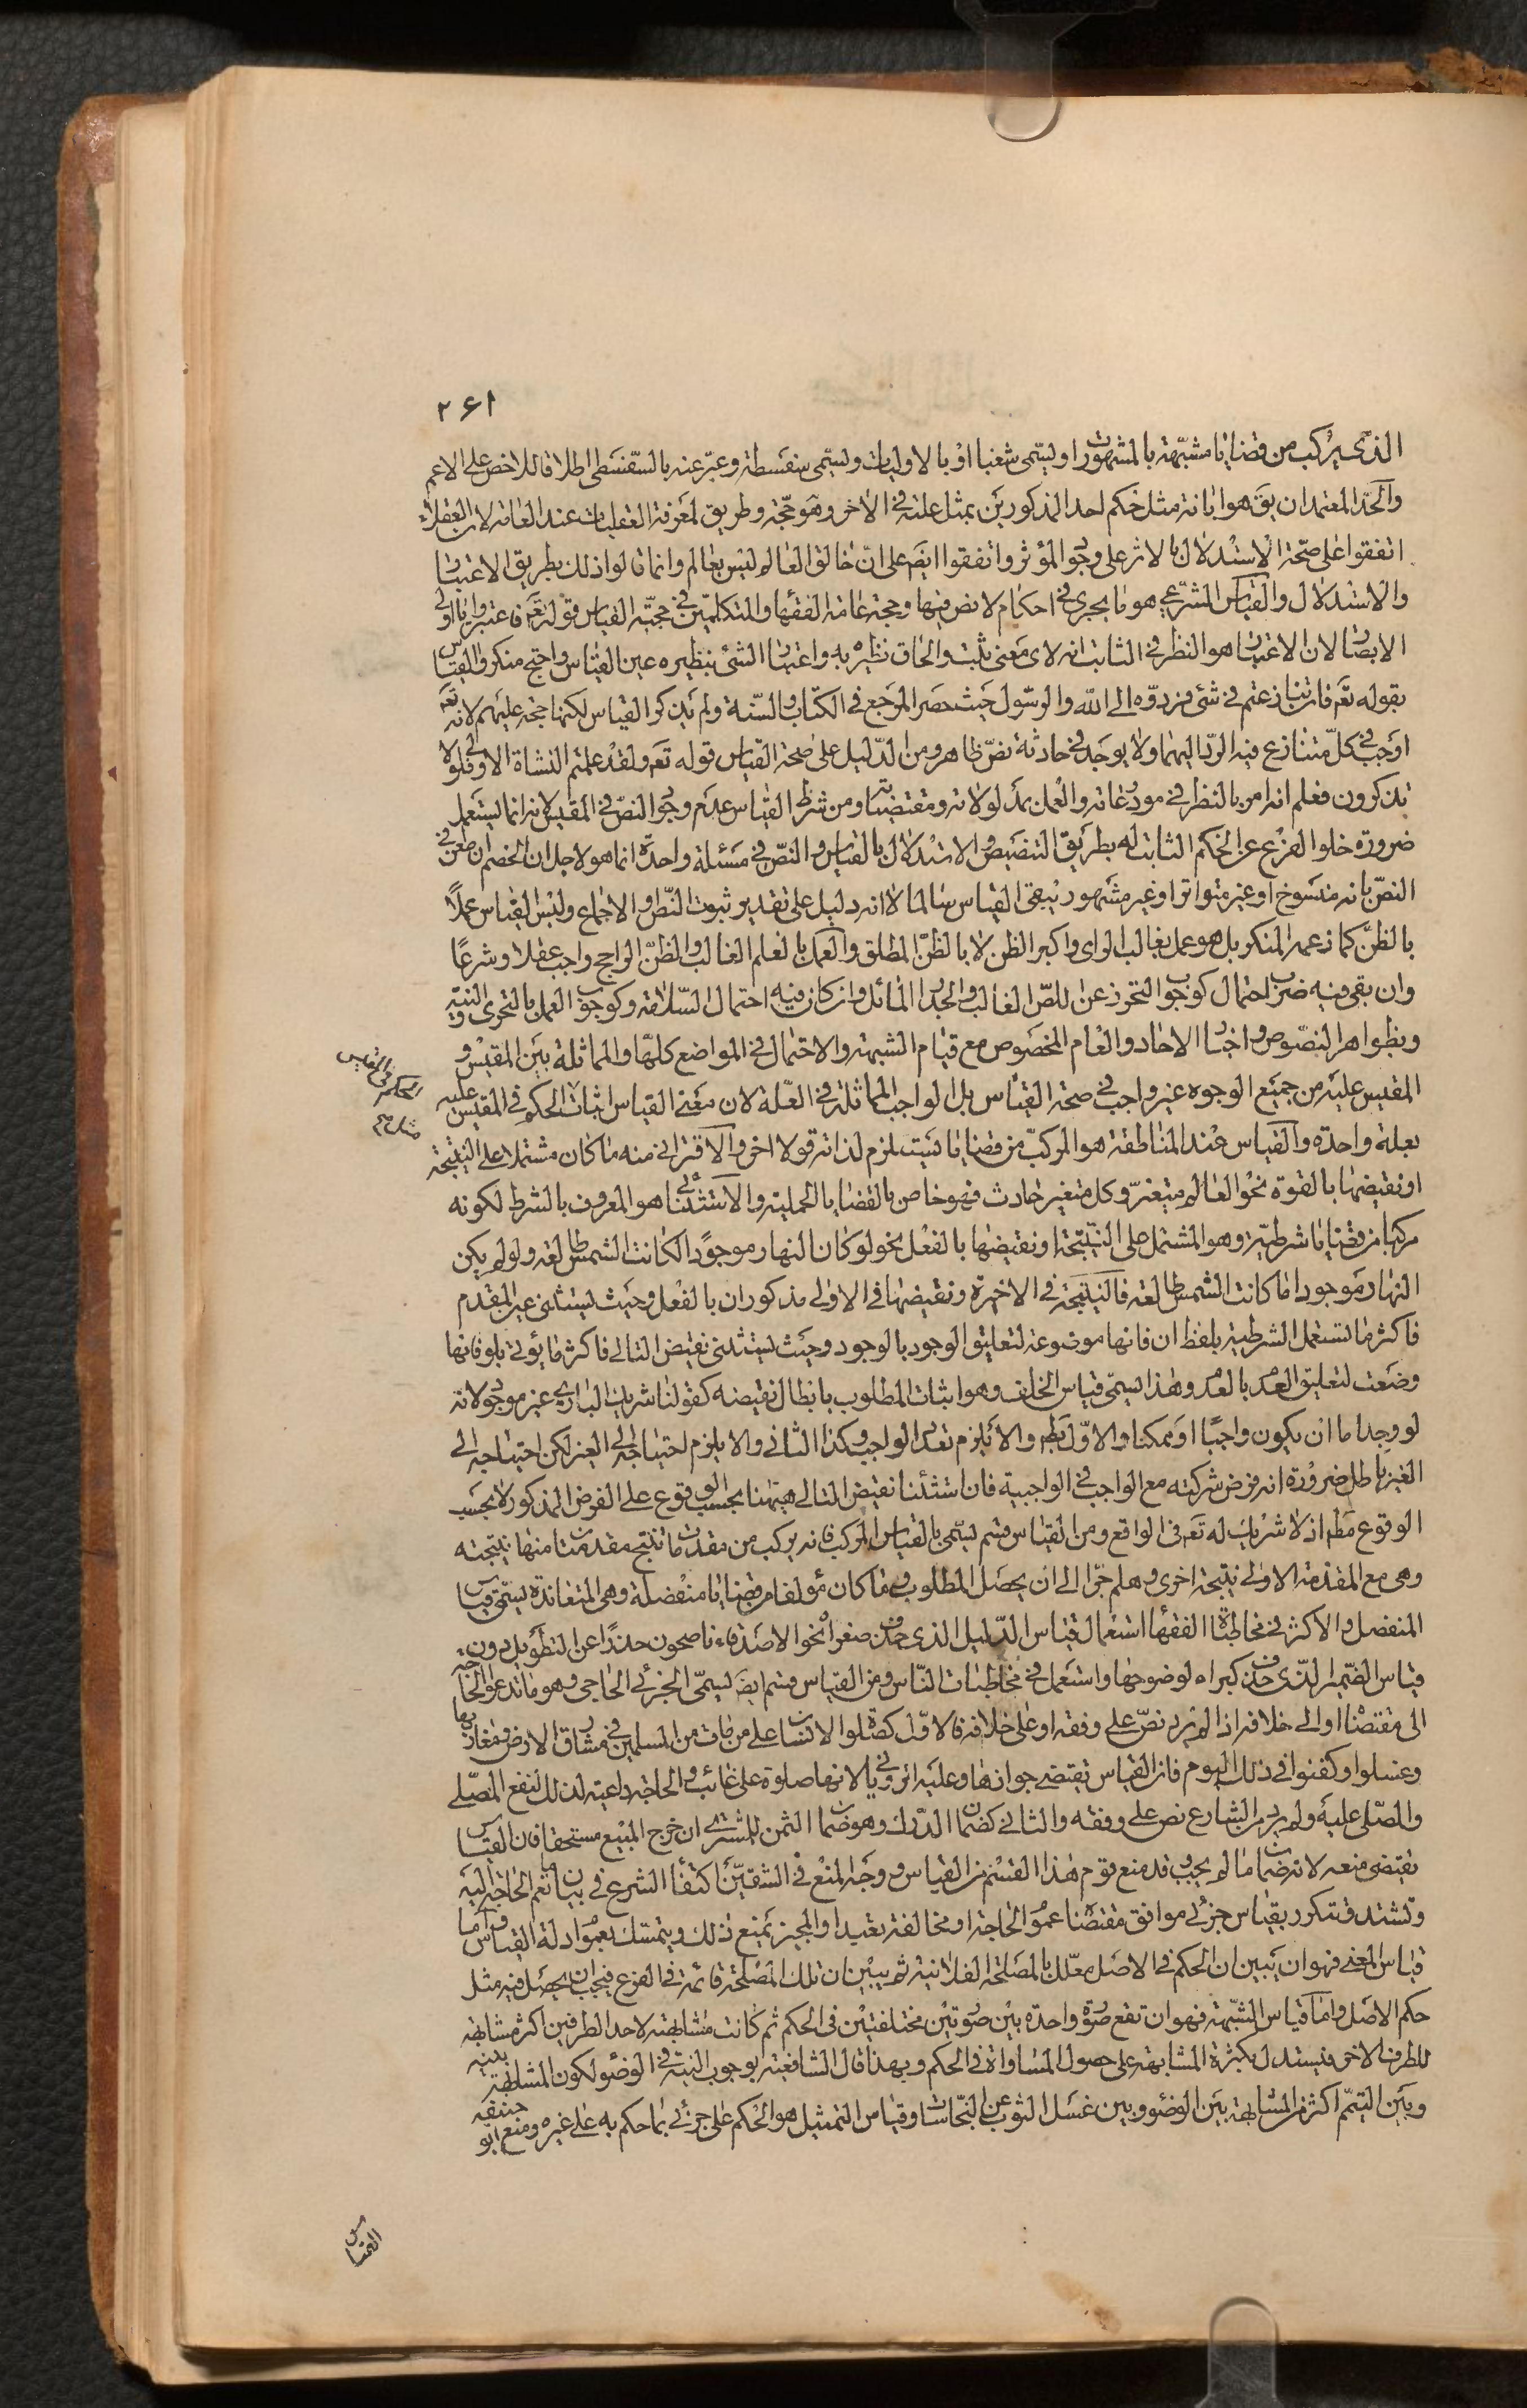 ٢٦١
الذى يركب من قضايا مشبّهة بالمشهورات و يسمى شغبا او بالاوليات و يسمى سفسطة و عبّر عنه بالسّفسطى اطلاقا للاخص على الاعم
والحدّ المعتمد ان يق هو ابانة مثل حكم احد المذكورين بمثل علته فى الاخر و هو حجّة و طريق لمعرفة العقليات عند العامة لان العقلاء
اتفقوا على صحّة الاستدلال بالاثر على وجود المؤثر و اتفقوا ايضا على ان خالق العالم ليس بعالم و انما قالوا ذلك بطريق الاعتبار
والاستدلال والقياس الشرعى هو ما يجرى فى احكام لا نص فيها و حجة عامة الفقهاء والمتكلمين فى حجيّة القياس قوله تعم فاعتبروا يا اولى
الابصار لان الاعتبار هو النظر فى الثابت انه لاى معنى ثبت والحاق نظيره به و اعتبار الشئ بنظيره عين القياس و احتج منكروا القياس
بقوله تعم فان تنازعتم فى شئ فردّوه الى الله والرسول حيث حصر المرجع فى الكتاب والسّنة و لم يذكر القياس لكنها حجة عليهم لانه تعم
اوجب فى كلّ متنازع فيه الردّ اليهما و لا يوجد فى حادثة نصّ ظاهر و من الدّليل على صحة القياس قوله تعم و لقد علمتم النشاة الاولى فلولا
تذكرون فعلم انه امر بالنظر فى مودعاته والعمل بمدلولاته و مقتضياته و من شرط القياس عدم وجود النصّ فى المقيس لانه انما يستعمل
ضرورة خلوا الفرع عن الحكم الثابت له بطريق التنصيص و الاستدلال بالقياس والنصّ فى مسئلة واحدة انما هو لاجل ان الخصم ان طعن فى
النصّ بانه منسوخ او غير متواتر او غير مشهور يبقى القياس سالما لا انه دليل على تقدير ثبوت النّص او الاجماع و ليس القياس عملا
بالظنّ كما زعمه المنكر بل هو عمل بغالب الراى و اكبر الظن لا بالظنّ المطلق والعمل بالعلم الغالب والظنّ الراجح واجب عقلا و شرعا
و ان بقى فيه ضرب احتمال كوجوب التحرز عن اللصّ الغالب والجدار المائل و ان كان فيه احتمال السّلامة و كوجوب العمل بالتحرى والنية
و بظواهر النصّوص و اخبار الاحاد والعام المخصوص مع قيام الشبهة والاحتمال فى المواضع كلهّا والمماثلة بين المقيس و
المقيس عليه من جميع الوجوه غير واجب فى صحة القياس بل الواجب المماثلة فى العّلة لان معنى القياس اثبات الحكم فى المقيس عليه
بعلة واحدة والقياس عند المناطقة هو المركبّ من قضايا يلزم لذاته قولا اخر و الاقترانى منه ما كان مشتملا على النتيجة
او نقيضها بالقوة نحو العالم متغيّر و كل متغير حادث فهو خاص بالقضايا الحملية و الاستثنائى هو المعروف بالشرط لكونه
مركبا من قضايا شرطيّة و هو المشتمل على النتيجة او نقيضها بالفعل نحو لو كان النهار موجودا لكانت الشمس طالعة و لو لم يكن
النهار موجودا ما كانت الشمس طالعة فالنتيجة فى الاخيرة و نقيضها فى الاولى مذكوران بالفعل و حيث يستثنى عين المقدم
فاكثر ما تستعمل الشرطية بلفظ ان فانها موضوعة لتعليق الوجود بالوجود و حيث يستثنى نقيض التالى فاكثر ما يؤتى بلو فانها
وضعت لتعليق العدم بالعدم و هذا يسمّى قياس الخلف و هو اثبات المطلوب بابطال نقيضه كقولنا شريك البارى غير موجود لانه
لو وجد اما ان يكون واجبا او ممكنا والاوّل بط و الا يلزم تعدد الواجب و كذا الثانى و الا يلزم احتياجه الى الغير لكن احتياجه الى
الغير باطل ضرورة انه فرض شركته مع الواجب فى الواجبية فان استثناء نقيض التالى هيهنا بحسب الوقوع على الفرض المذكور لا بحسب
الوقوع مط اذ لا شريك له تعم فى الواقع و من القياس قسم يسمّى بالقياس المركب فانه يركب من مقدمات تنتج مقدمتان منها نتيجته
و هى مع المقدمة الاولى نتيجة اخرى و هلم جرّا الى ان يحصل المطلوب و ما كان مؤلفا من قضايا منفصلة و هى المتعاندة يسمّى قياس
المنفصل والاكثر فى مخاطبات الفقهاء استعمال قياس الدّليل الذى حذف صغراه نحو الاصدقاء ناصحون حذرا عن التطويل دون
قياس الضّمير الذى حذف كبراه لوضوحها و استعمل فى مخاطبات النّاس و من القياس قسم ايضا يسمّى الجزئى الحاجى و هو ما تدعو الحاجة
الى مقتضاه او الى خلافه اذا لم يرد نصّ على وفقه او على خلافه فالاوّل كصلوة الانسان على من مات من المسلمين فى مشارق الارض و مغاربها
و غسلوا و كفنوا فى ذلك اليوم فان القياس يقتضى جوازها و عليه الرويانى لانها صلوة على غائب والحاجة داعية لذلك لنفع المصّلى
والمصّلى عليه و لم يرد من الشارع نص على وفقه والثانى كضمان الدّرك و هو ضمان الثمن للمشترى ان خرج المبيع مستحقا فان القياس
يقتضى منعه لانه ضمان ما لم يجب و قد منع قوم هذا القسم من القياس و وجه المنع فى الشقيّن اكتفاء الشرع فى بيان ما تعم الحاجة اليه
و تشتد فتتكرر بقياس جزئى موافق مقتضاه عموم الحاجة او مخالفة بعيد او المجيز يمنع ذلك و يتمسك بعموم ادلة القياس و اما
قياس المعنى فهو ان يبين ان الحكم فى الاصل معّلل بالمصلحة الفلانية ثم يبيّن ان تلك المصلحة قائمة فى الفرع فيجب ان يحصل فيه مثل
حكم الاصل و اما قياس الشّبهة فهو ان تقع صورة واحدة بين صورتين مختلفتين فى الحكم ثم كانت مشابهته لاحد الطرفين اكثر مشابهة
للطرف الاخر فيستدل بكثرة المشابهة على حصول المساواة فى الحكم و بهذا قال الشافعية بوجوب النية فى الوضوء لكون المشابهة بينه
و بين التيمّم اكثر من المشابهة بين الوضوء و بين غسل الثوب عن النّجاسات و قياس التمثيل هو الحكم على جزئى بما حكم به على غيره و منع ابو حنيفة
القياس